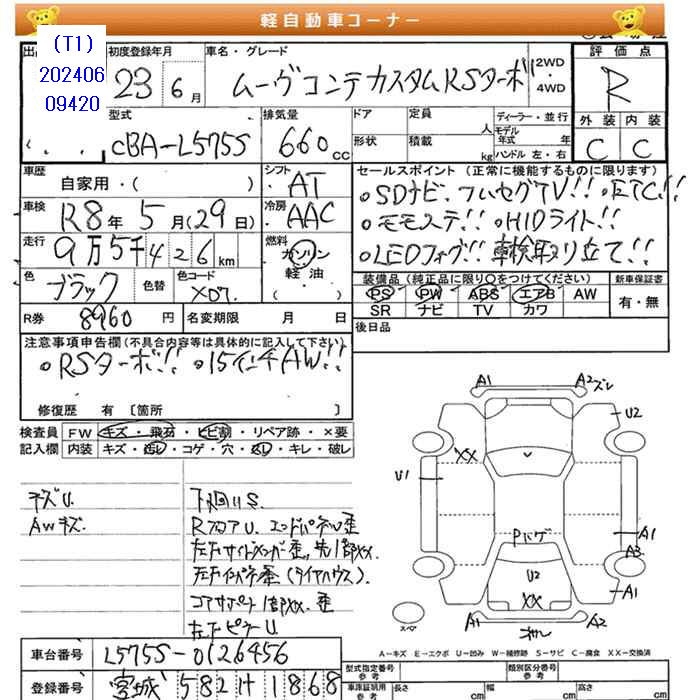 軽自動車コーナー
(T1)
202406
09420
初度登録年月
23 6月
車名・グレード
ムーヴコンテカスタムRSターボ
2WD
4WD
評価点
R
外装 内装
C C
型式
CBA-L575S
排気量
660cc
ドア 定員 人
形状 積載 kg
ディーラー・並行
モデル年式 年
ハンドル 左・右
車歴
自家用・( )
シフト
AT
車検
R8年 5月(29日)
冷房
AAC
走行
9万5千426km
燃料
ガソリン
軽油
( )
色
ブラック
色替
色コード
X07
R券 8960円 名変期限 月 日
セールスポイント (正常に機能するものに限ります)
○SDナビ、フルセグTV!! ○ETC!!
○モモステ!! ○HIDライト!!
○LEDフォグ!! 車検取り立て!!
装備品(純正品に限り○をつけてください)
新車保証書
PS PW ABS エアB AW
SR ナビ TV カワ
有・無
後日品
注意事項申告欄(不具合内容等は具体的に記入して下さい)
○RSターボ!! ○15インチAW!!
修復歴 有 [箇所 ]
検査員
記入欄
FW キズ・飛石・ヒビ割・リペア跡・×要
内装 キズ・汚レ・コゲ・穴・スレ・キレ・破レ
キズU.
AWキズ.
下回りS.
RフロアU. エンドパネル歪
左右サイドメンバー歪,先1部XX.
左右インパネ歪(タイヤハウス).
コアサポート1部XX.歪
左右ピラーU.
A1 A2ズレ
U2
XX
U1
Pハゲ
A1
A3
U2
XX
A1
A1 A2
スペア
A-キズ E-エクボ U-凹み W-補修跡 S-サビ C-腐食 XX-交換済
車台番号 L575S-0126456
登録番号 宮城 582 ｻ 1868
型式指定番号
参考
類別区分番号
参考
車庫証明用
参考
長さ cm 幅 cm 高さ cm